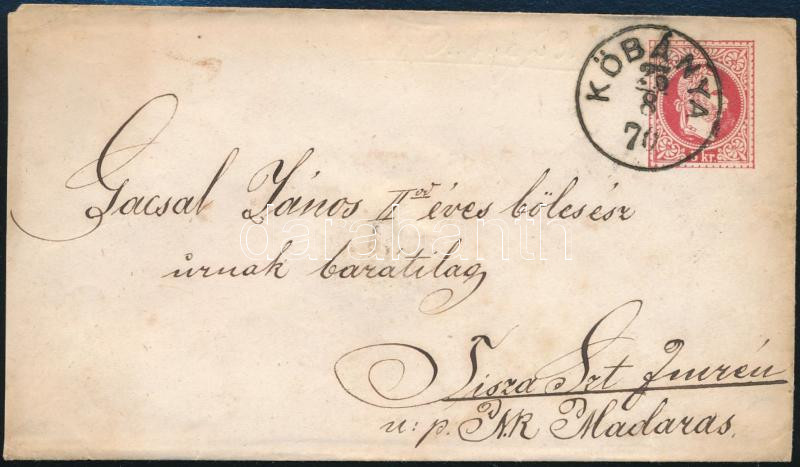 KÖBÁNYA
28
8
70
5 kr.
Gacsal János IIod éves bölcsész
urnak barátilag
Tisza Szt Imrén
u: p. N.K Madaras.
darabanth